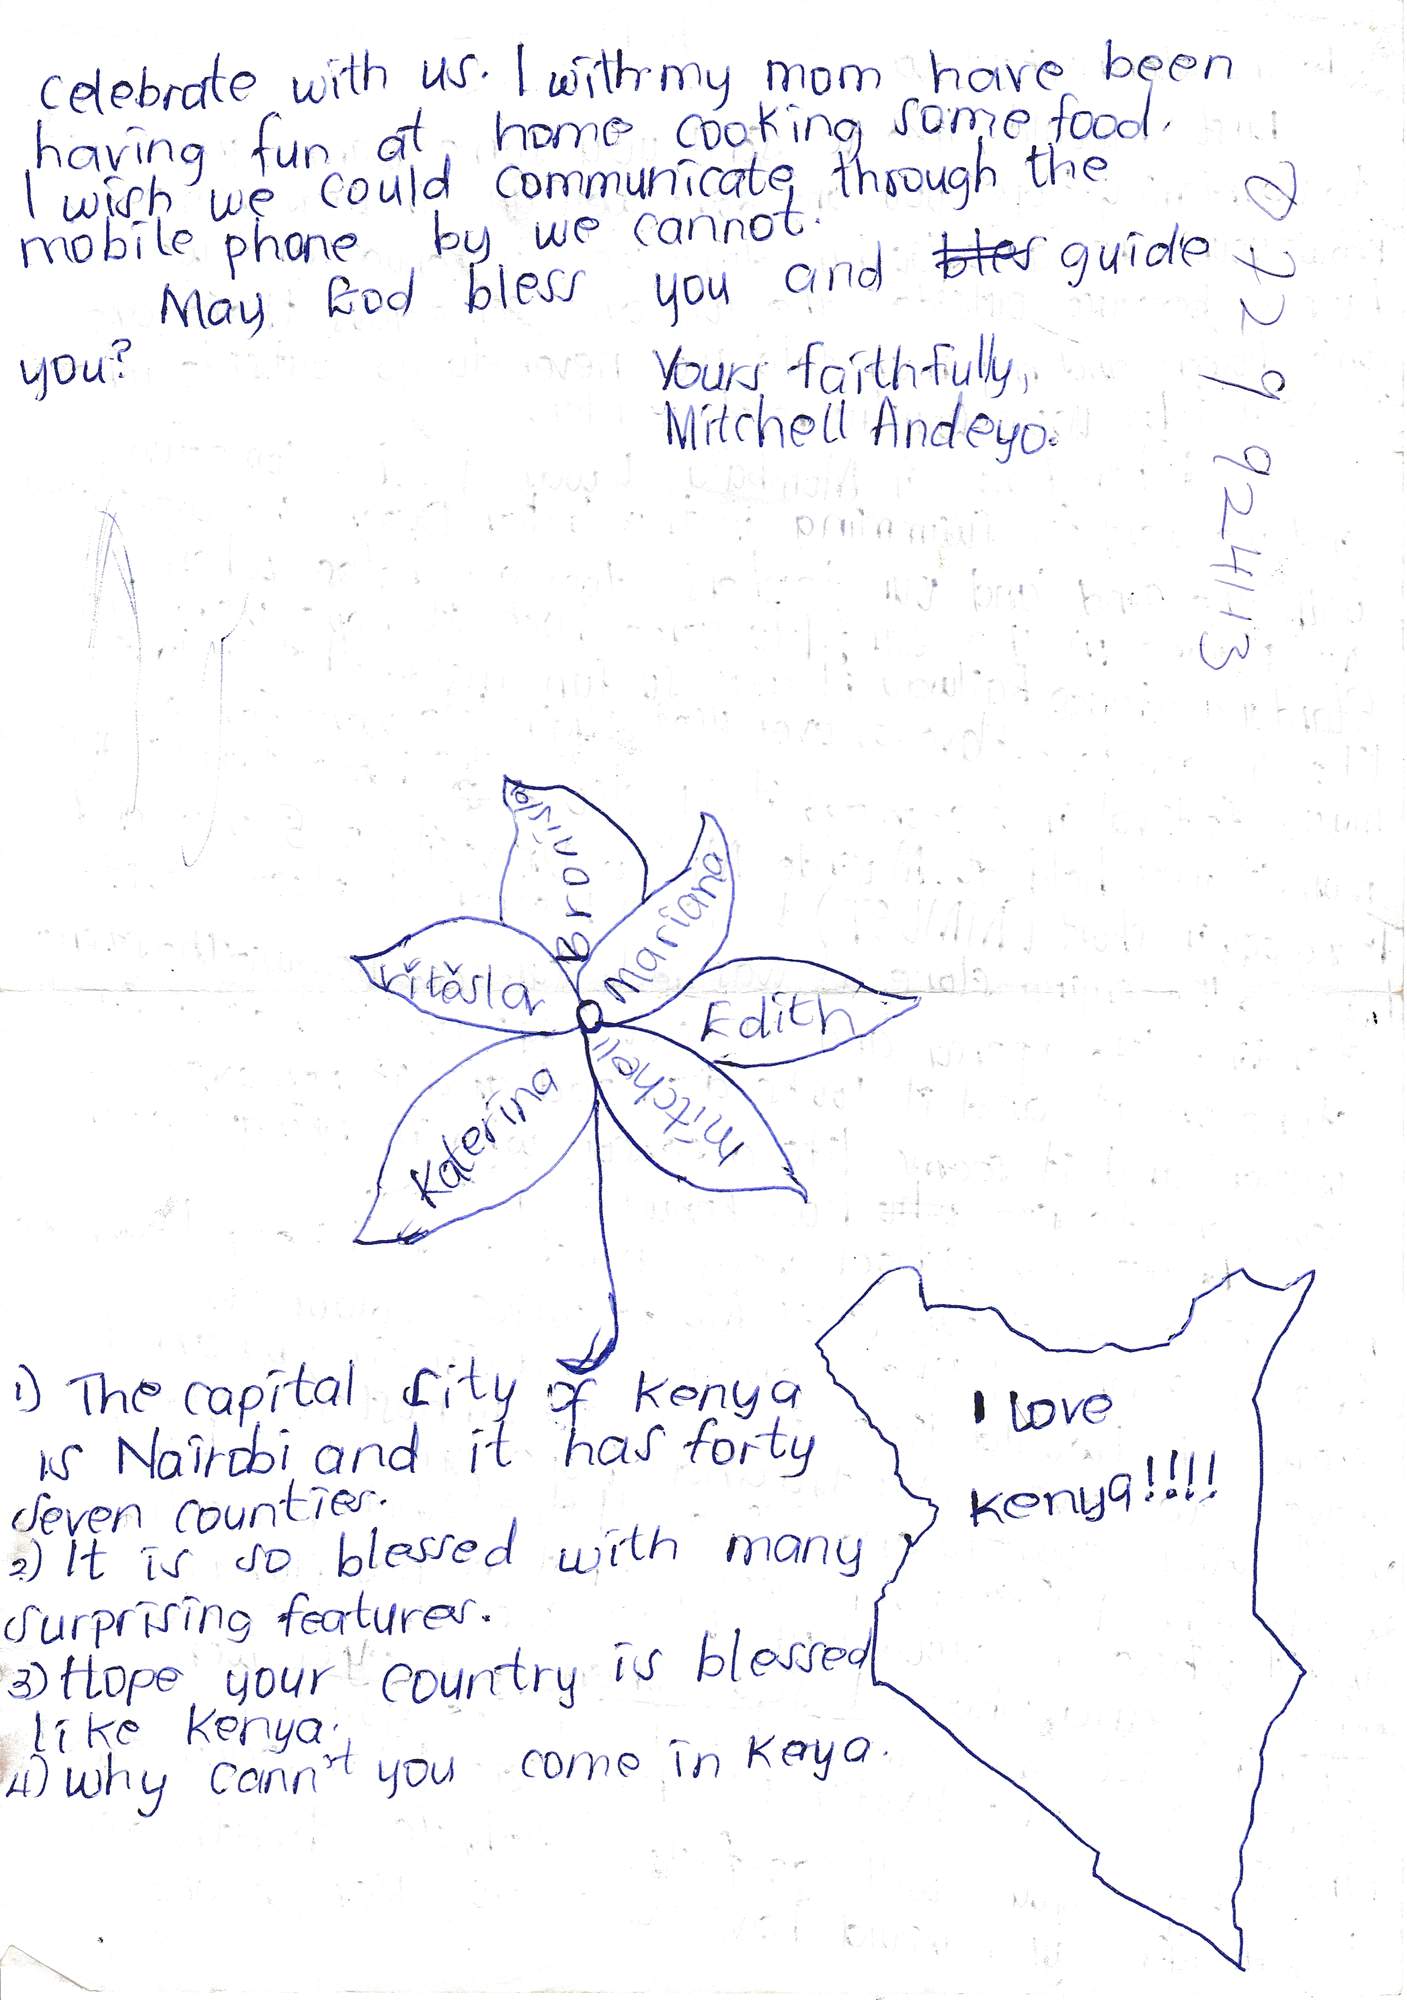 celebrate with us. I with my mom have been
having fun at home cooking some food.
I wish we could communicate through the
mobile phone by we cannot.
May God bless you and bles guide
you?
Yours faithfully,
Mitchell Andeyo.
0729 924113
Bronisla
Mariana
Edith
Mitchell
Katerina
1) The capital city of Kenya
is Nairobi and it has forty
seven counties.
2) It is so blessed with many
surprising features.
3) Hope your country is blessed
like Kenya.
4) Why cann't you come in Keya.
I love
Kenya!!!!